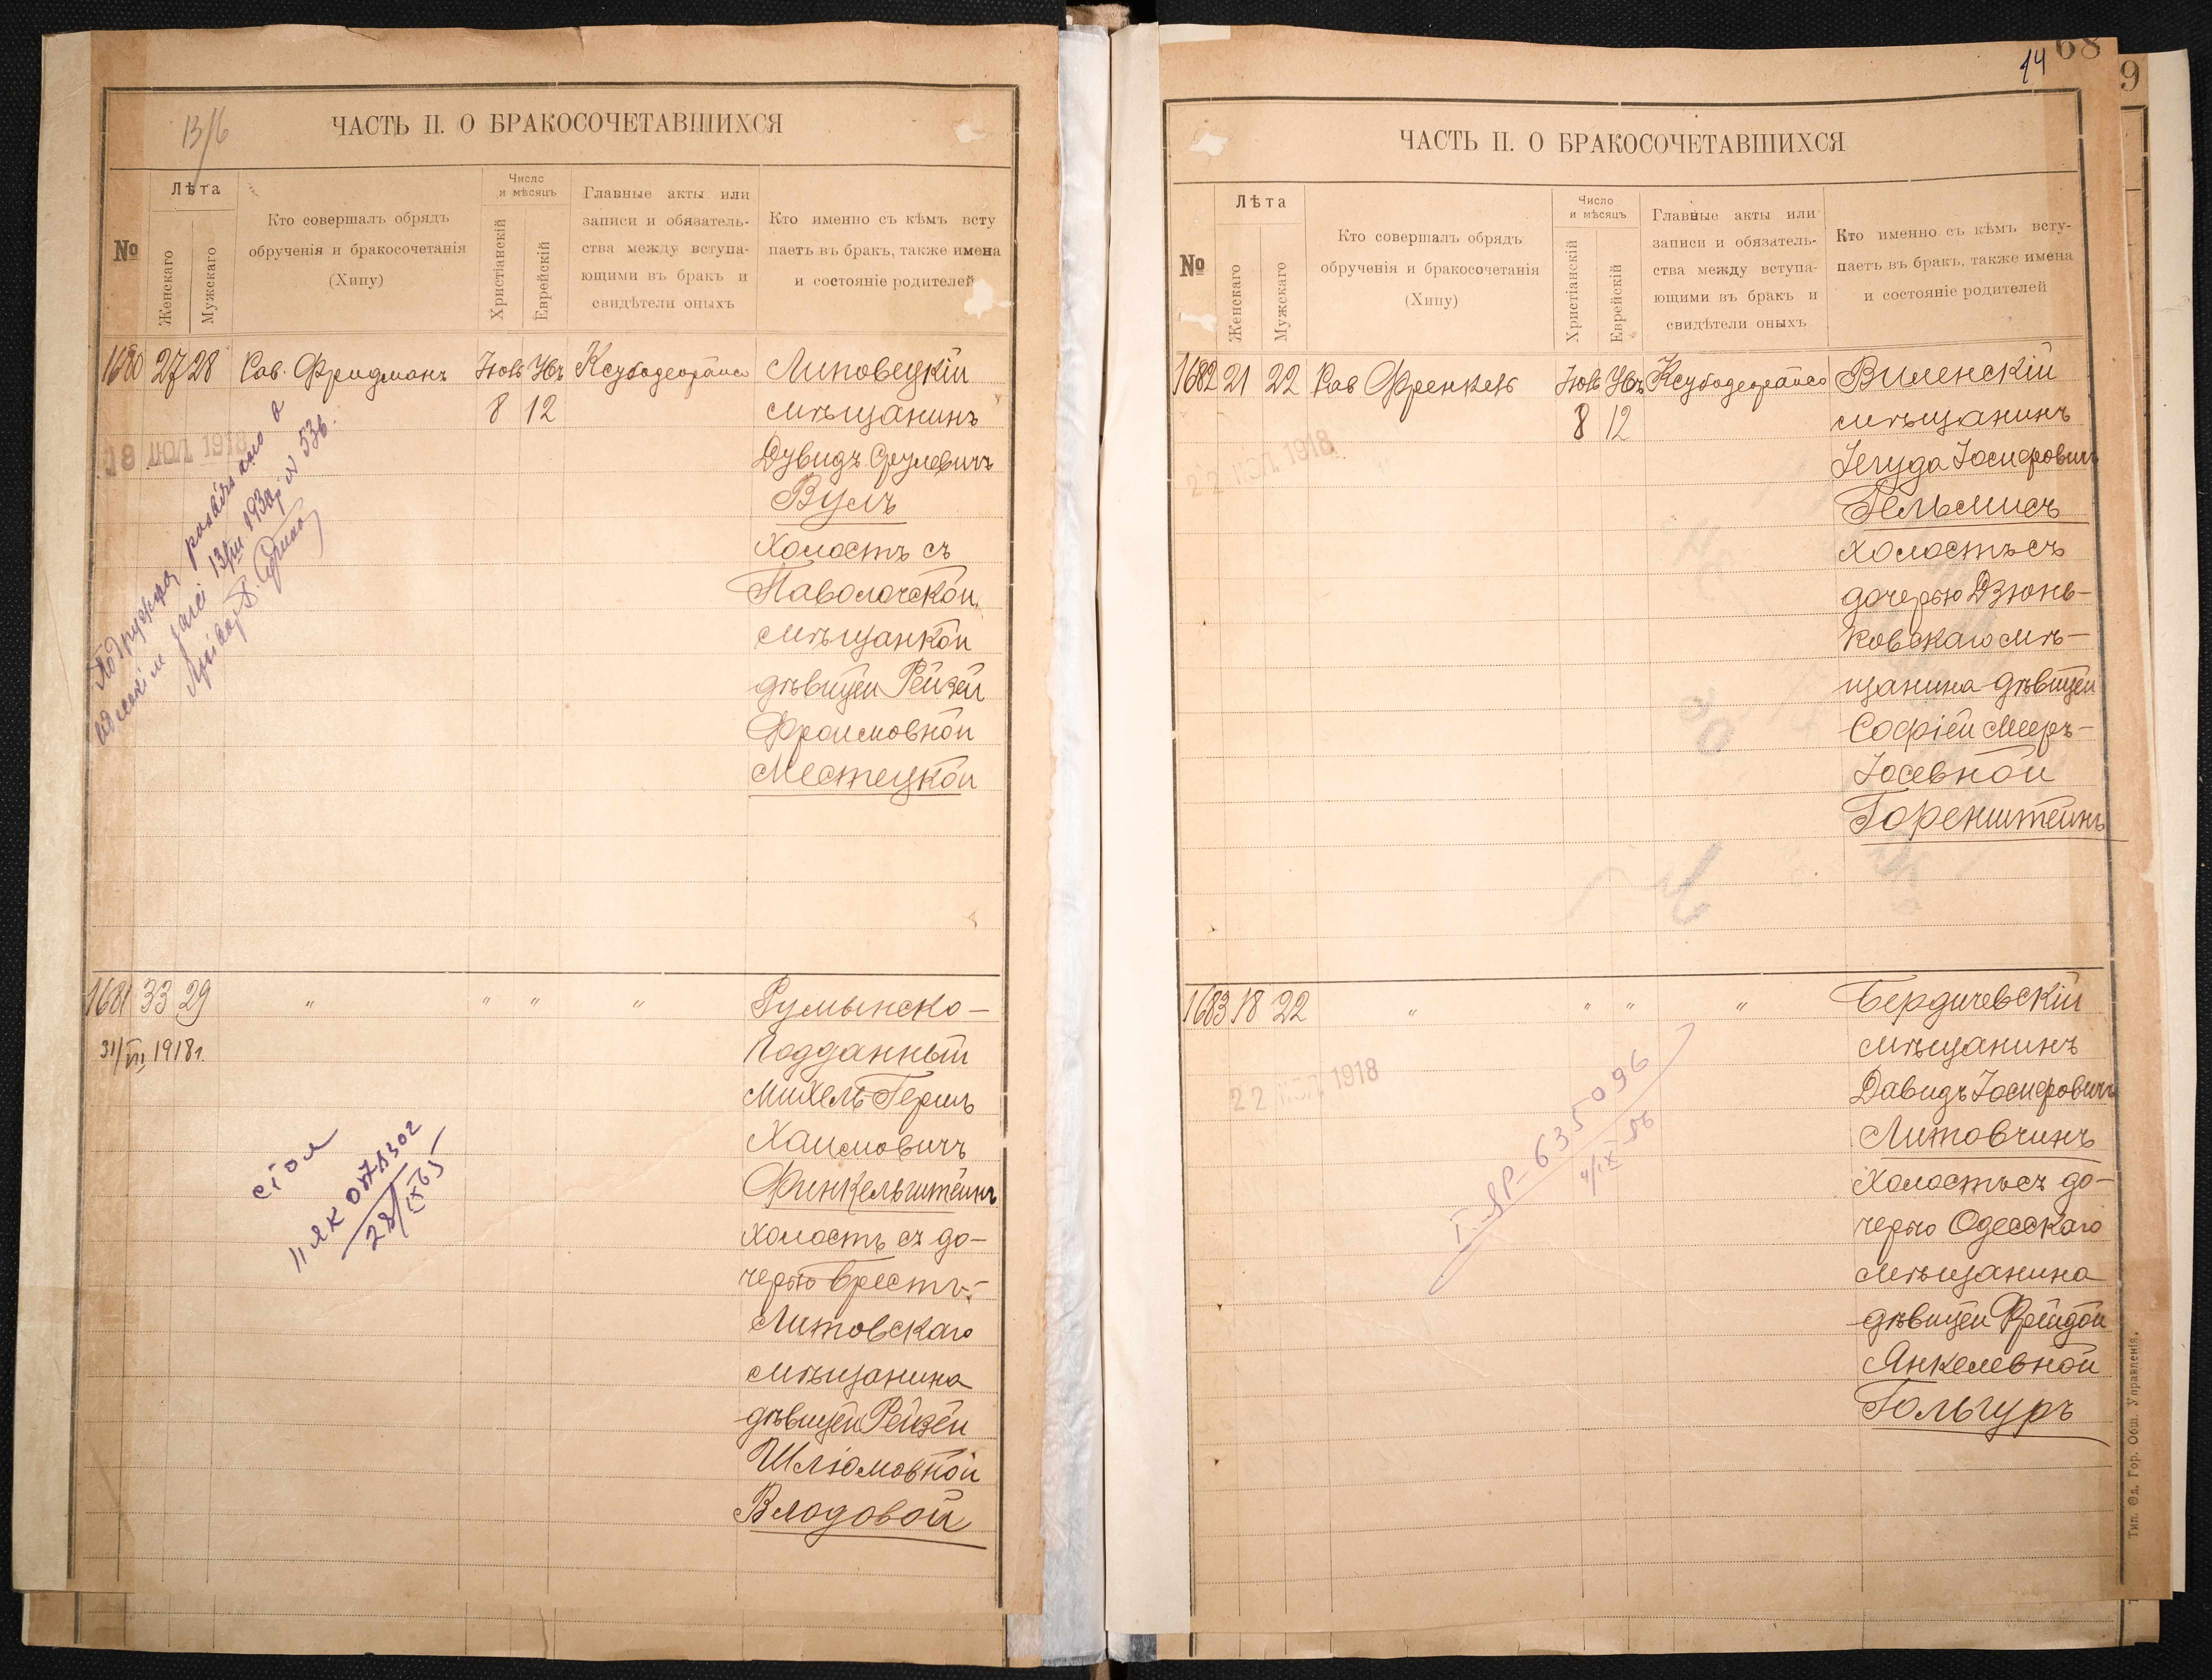 13/6
ЧАСТЬ II. О БРАКОСОЧЕТАВШИХСЯ
№
Лѣта
Женскаго
Мужескаго
Кто совершалъ обрядъ
обрученія и бракосочетанія
(Хипу)
Число
и мѣсяцъ
Христіанскій
Еврейскій
Главные акты или
записи и обязатель-
ства между вступа-
ющими въ бракъ и
свидѣтели оныхъ
Кто именно съ кѣмъ всту
паетъ въ бракъ, также имена
и состояніе родителей
1680 27 28 Рав. Фридманъ
8 12
Липовецкій
мѣщанинъ
Дувидъ Срулевичъ
Вулъ
Холостъ съ
Паволочской
мѣщанкой
дѣвицей Рейзей
Фроимовной
Местецкой
18 1918
1681 33 29 " " " "
31/VII 1918 г.
Румынско-
Подданный
Михель-Гершъ
Хаимовичъ
Финкельштейнъ
холостъ съ до-
черью Брестъ-
Литовскаго
мѣщанина
дѣвицей Рейзей
Шлiомовной
Влодовой
II ЯК 078302
28/IX 65
14 68
9
ЧАСТЬ II. О БРАКОСОЧЕТАВШИХСЯ
№
Лѣта
Женскаго
Мужскаго
Кто совершалъ обрядъ
обрученія и бракосочетанія
(Хипу)
Число
и мѣсяцъ
Христіанскій
Еврейскій
Главные акты или
записи и обязатель-
ства между вступа-
ющими въ бракъ и
свидѣтели оныхъ
Кто именно съ кѣмъ всту-
паетъ въ бракъ, также имена
и состояніе родителей
1682 21 22 Рав Френкель
8 12
Виленскій
мѣщанинъ
Іегуда Іосифовичъ
Гельмисъ
холостъ съ
дочерью Дзюнь-
ковскаго мѣ-
щанина дѣвицей
Софіей Мееръ-
Іосевной
Горенштейнъ
22 1918
1683 18 22 " " " "
22 1918
Бердичевскій
мѣщанинъ
Давидъ Іосифовичъ
Литовчинъ
Холостъ съ до-
черью Одесскаго
мѣщанина
дѣвицей Фрейдой
Янкелевной
Гольгуръ
I-ЯР-635096
4/IX 56
Тип. Од. Гор. Общ. Управленія.